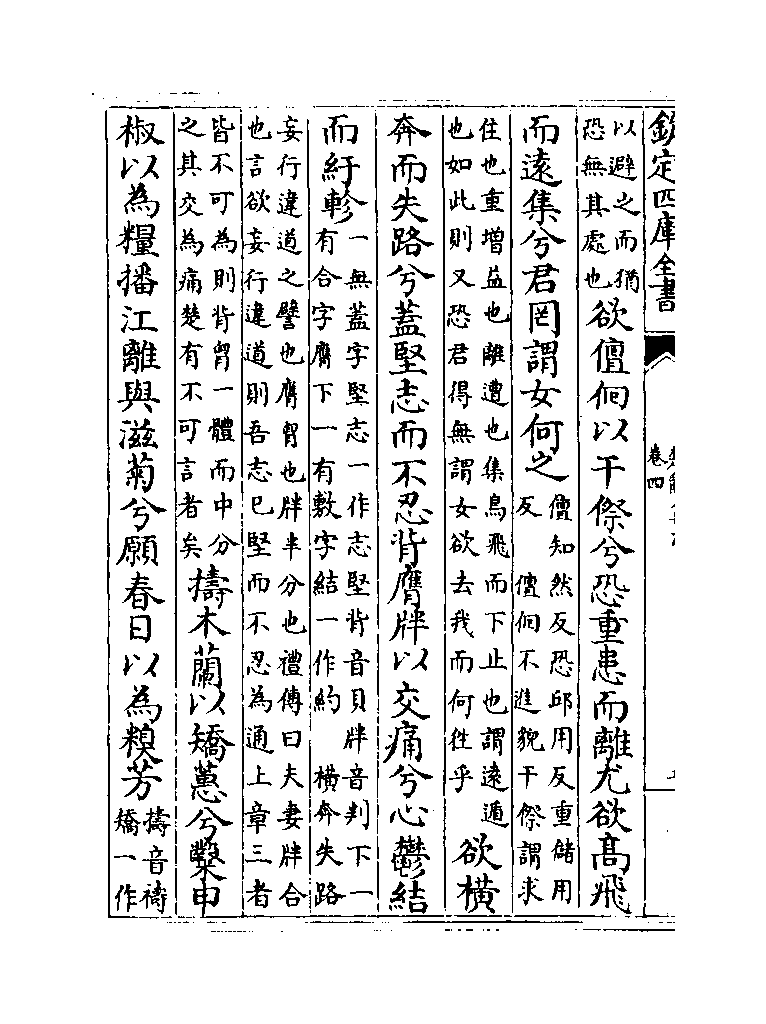 欽定四庫全書
卷四
以避之而猶
恐無其處也
欲儃佪以干傺兮恐重患而離尤欲髙飛
而遠集兮君罔謂女何之
儃知然反恐邱用反重儲用
反　儃佪不進貌干傺謂求
住也重增益也離遭也集鳥飛而下止也謂遠遁
也如此則又恐君得無謂女欲去我而何徃乎
欲橫
奔而失路兮蓋堅志而不忍背膺牉以交痛兮心鬱結
而紆軫
一無蓋字堅志一作志堅背音貝牉音判下一
有合字膺下一有敷字結一作約　橫奔失路
妄行違道之譬也膺胷也牉半分也禮傳曰夫妻牉合
也言欲妄行違道則吾志已堅而不忍為通上章三者
皆不可為則背胷一體而中分
之其交為痛楚有不可言者矣
擣木蘭以矯蕙兮糳申
椒以為糧播江離與滋菊兮願春日以為糗芳
擣音禱
矯一作